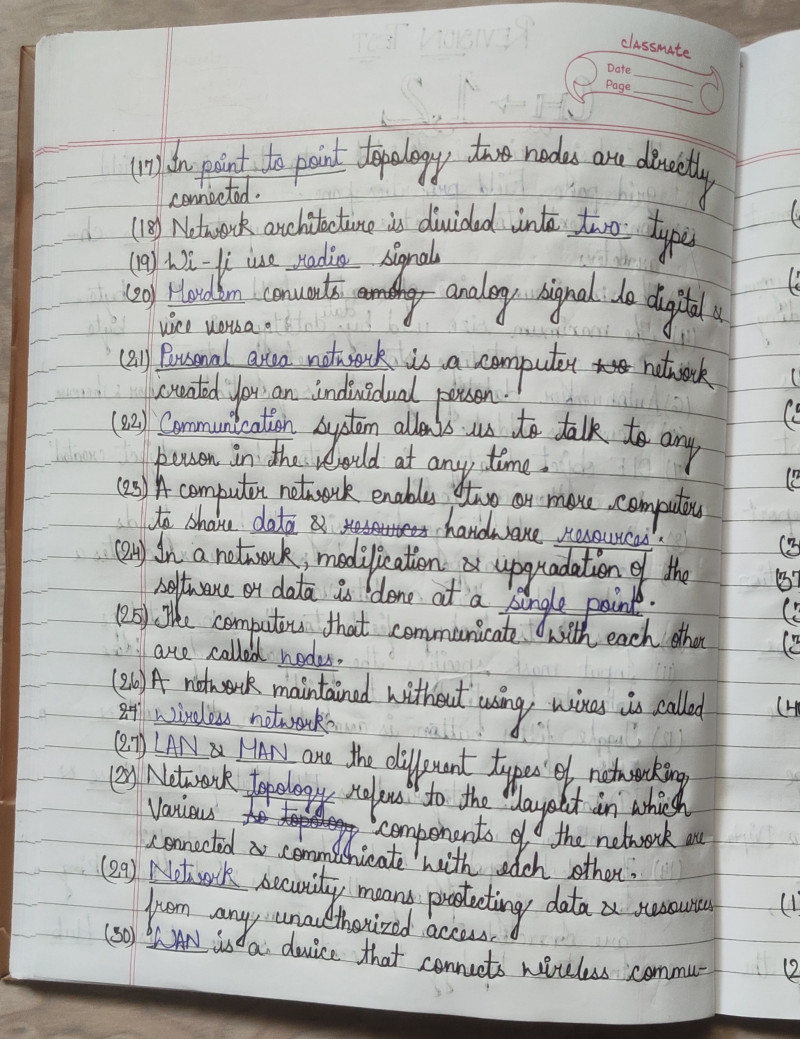 classmate
Date
Page
(17) In point to point topology, two nodes are directly
connected.
(18) Network architecture is divided into two types
(19) Wi-fi use radio signals
(20) Mordem converts among analog signal to digital &
vice versa.
(21) Personal area network is a computer two network
created for an individual person.
(22) Communication system allows us to talk to any
person in the world at any time.
(23) A computer network enables two or more computers
to share data & resources hardware resources.
(24) In a network, modification & upgradation of the
software or data is done at a single point.
(25) The computers that communicate with each other
are called nodes.
(26) A network maintained without using wires is called
27 wireless network.
(27) LAN & MAN are the different types of networking
(28) Network topology refers to the layout in which
Various to topology components of the network are
connected & communicate with each other.
(29) Network security means protecting data & resources
from any unauthorized access.
(30) WAN is a device that connects wireless commu-